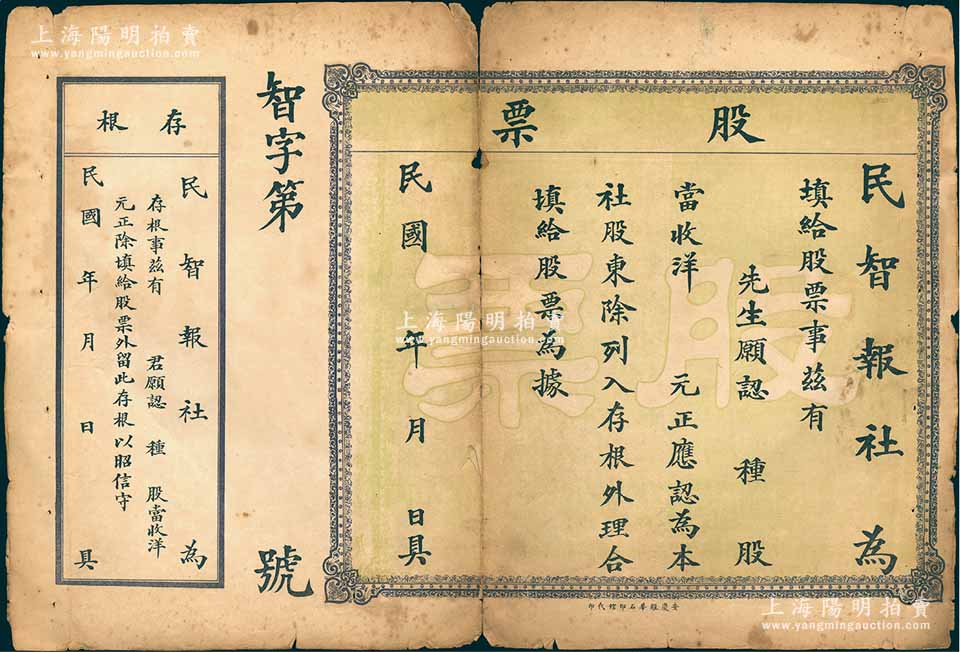 股票
民智報社為
填給股票事茲有
先生願認 種 股
當收洋 元正應認為本
社股東除列入存根外理合
填給股票為據
民國 年 月 日具
股票
安慶 華石印館代印
智字第 號
存根
民智報社為
存根事茲有 君願認 種 股當收洋
元正除填給股票外留此存根以昭信守
民國 年 月 日 具
上海陽明拍賣
www.yangmingauction.com
上海陽明拍賣
www.yangmingauction.com
上海陽明拍賣
www.yangmingauction.com